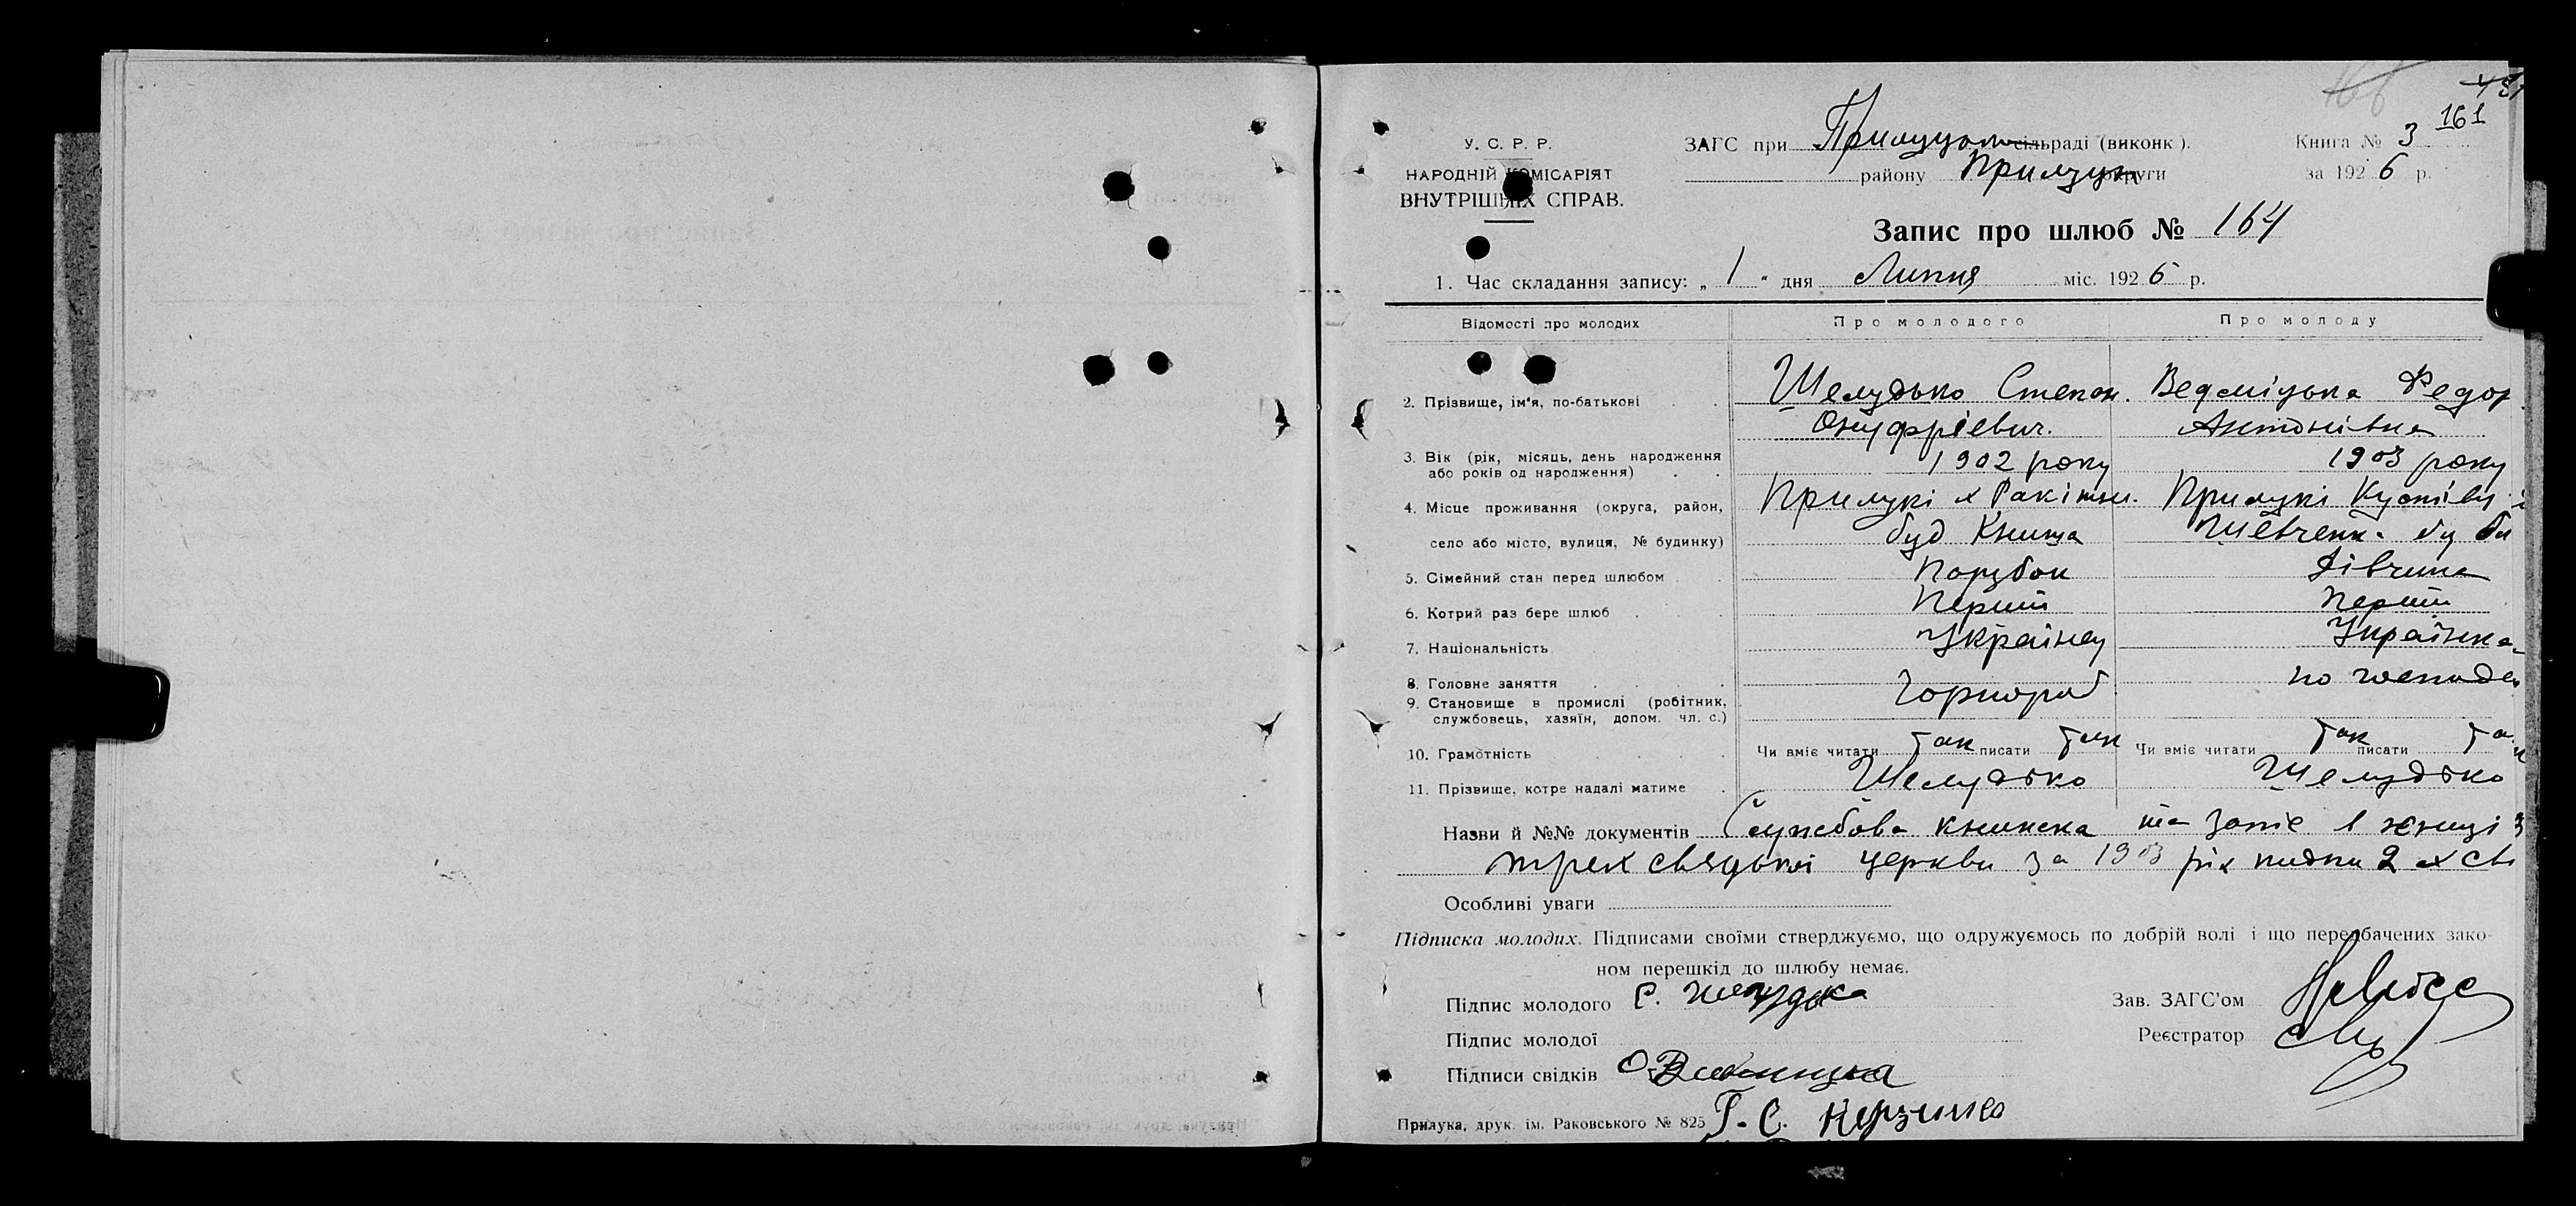 161
У. С. Р. Р.
НАРОДНІЙ КОМІСАРІЯТ
ВНУТРІШНІХ СПРАВ.
ЗАГС при Прилуцьк сільраді (виконк).
району Прилуцьк округи
Книга № 3
за 1926 р.
Запис про шлюб № 164
1. Час складання запису: „ 1 “ дня Липня міс. 1926 р.
Відомості про молодих Про молодого Про молоду
2. Прізвище, ім'я, по-батькові Шелудько Степан. Ведміцька Федор
Онуфріевич. Антонівна
3. Вік (рік, місяць, день народження
або років од народження) 1902 року 1903 року
4. Місце проживання (округа, район, Прилукі Прилукі Кустівц
село або місто, вулиця, № будинку) буд Книша Шевченк. бу
5. Сімейний стан перед шлюбом Парубок Дівчина
6. Котрий раз бере шлюб Перший Перший
7. Національність Українец Українка
8. Головне заняття по господа
9. Становище в промислі (робітник,
службовець, хазяїн, допом. чл. с.) Чорнороб
10. Грамотність Чи вміє читати так писати так Чи вміє читати так писати так
11. Прізвище, котре надалі матиме Шелудько Шелудько
Назви й №№ документів Службова книжка та запис в книзі
трехсвяцької церкви за 1903 рік 2 х сві
Особливі уваги
Підписка молодих. Підписами своїми стверджуємо, що одружуємось по добрій волі і що передбачених зако-
ном перешкід до шлюбу немає.
Підпис молодого С. Шелудько
Зав. ЗАГС'ом
Підпис молодої
Реєстратор
Підписи свідків
Прилука, друк. ім. Раковського № 825